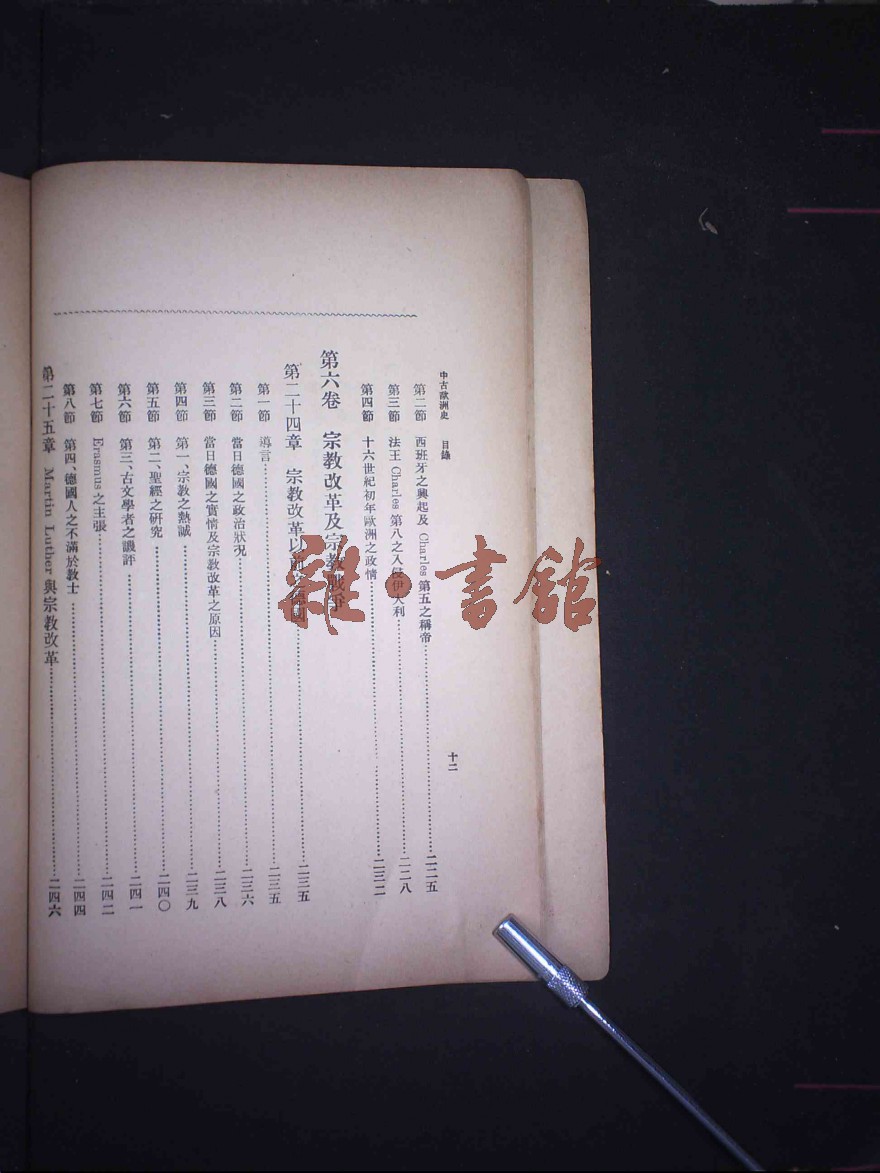 中古歐洲史 目錄 十二
第二節 西班牙之興起及 Charles 第五之稱帝 二二五
第三節 法王 Charles 第八之入侵伊大利 二二八
第四節 十六世紀初年歐洲之政情 二三二
第六卷 宗教改革及宗教戰爭
第二十四章 宗教改革以前之德國 二三五
第一節 導言 二三五
第二節 當日德國之政治狀況 二三六
第三節 當日德國之實情及宗教改革之原因 二三八
第四節 第一、宗教之熱誠 二三九
第五節 第二、聖經之研究 二四〇
第六節 第三、古文學者之譏評 二四一
第七節 Erasmus 之主張 二四二
第八節 第四、德國人之不滿於教士 二四四
第二十五章 Martin Luther 與宗教改革 二四六
雜·書館